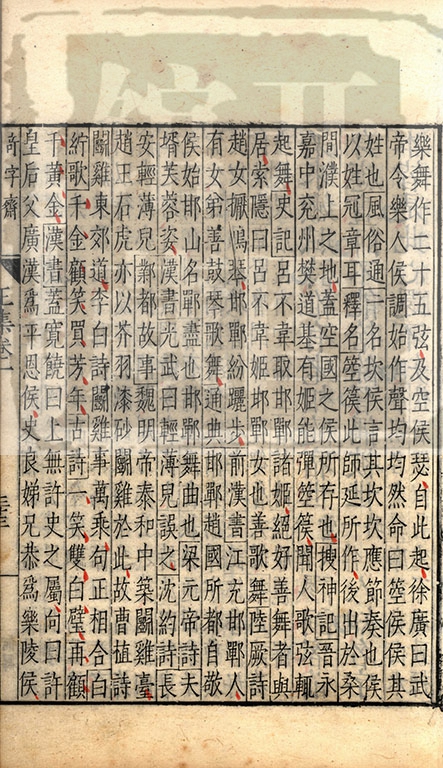 樂舞作二十五弦及空侯瑟自此起徐廣曰武
帝令樂人侯調始作聲均均然命曰箜侯侯其
姓也風俗通一名坎侯言其坎坎應節奏也侯
以姓冠章耳釋名箜篌此師延所作後出於桑
間濮上之地蓋空國之侯所存也搜神記晉永
嘉中兖州樊道基有姬能彈箜篌聞人歌弦輒
起舞史記呂不韋取邯鄲諸姬絕好善舞者與
居索隱曰呂不韋姬邯鄲女也善歌舞陸厥詩
趙女擫鳴琴邯鄲紛躧步前漢書江充邯鄲人
有女弟善鼓琴歌舞通典邯鄲趙國所都自敬
侯始邯山名鄲盡也邯鄲舞曲也梁元帝詩夫
壻芙蓉姿漢書光武曰輕薄兒誤之沈約詩長
安輕薄兒鄴都故事魏明帝泰和中築鬬雞臺
趙王石虎亦以芥羽漆砂鬬雞於此故曹植詩
鬬雞東郊道李白詩鬬雞事萬乘句正相合白
紵歌千金顧笑買芳年古詩一笑雙白璧再顧
千黄金漢書蓋寬饒曰上無許史之屬向曰許
皇后父廣漢爲平恩侯史良娣兄恭爲樂陵侯
奇字齋
卷一